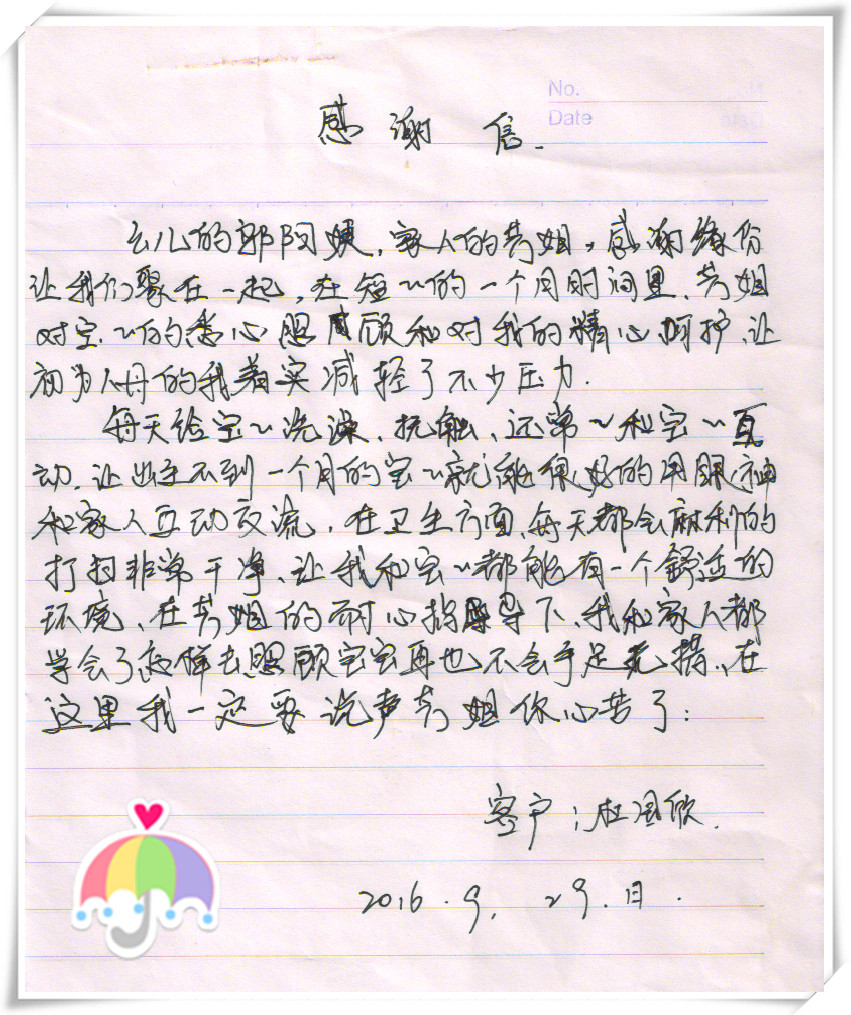 No.
Date
感谢信.
云儿的郭阿姨,家人的芳姐,感谢缘份
让我们聚在一起,在短~的一个月时间里、芳姐
对宝~的悉心照顾和对我的精心呵护、让
初为人母的我着实减轻了不少压力.
每天给宝~洗澡、抚触、还常~和宝~互
动.让出生不到一个月的宝~就能很好的用眼神
和家人互动交流,在卫生方面、每天都会麻利的
打扫非常干净、让我和宝~都能有一个舒适的
环境、在芳姐的耐心指导下、我和家人都
学会了怎样去照顾宝宝再也不会手足无措、在
这里我一定要说声芳姐你心苦了:
客户:杜
2016.9.29.日.